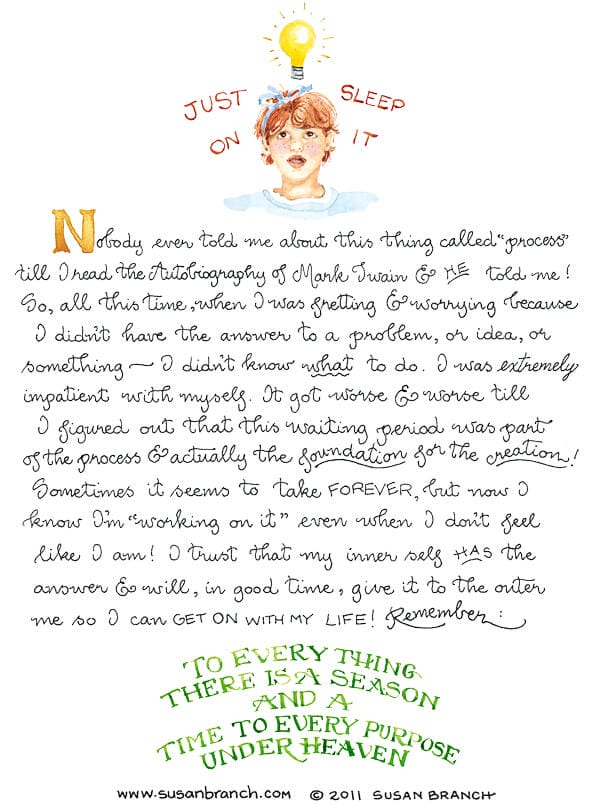 JUST SLEEP
ON IT
Nobody ever told me about this thing called "process"
till I read the Autobiography of Mark Twain & HE told me!
So, all this time, when I was fretting & worrying because
I didn't have the answer to a problem, or idea, or
something — I didn't know what to do. I was extremely
impatient with myself. It got worse & worse till
I figured out that this waiting period was part
of the process & actually the foundation for the creation!
Sometimes it seems to take FOREVER, but now I
know I'm "working on it" even when I don't feel
like I am! I trust that my inner self HAS the
answer & will, in good time, give it to the outer
me so I can GET ON WITH MY LIFE! Remember:
TO EVERY THING
THERE IS A SEASON
AND A
TIME TO EVERY PURPOSE
UNDER HEAVEN
www.susanbranch.com © 2011 SUSAN BRANCH